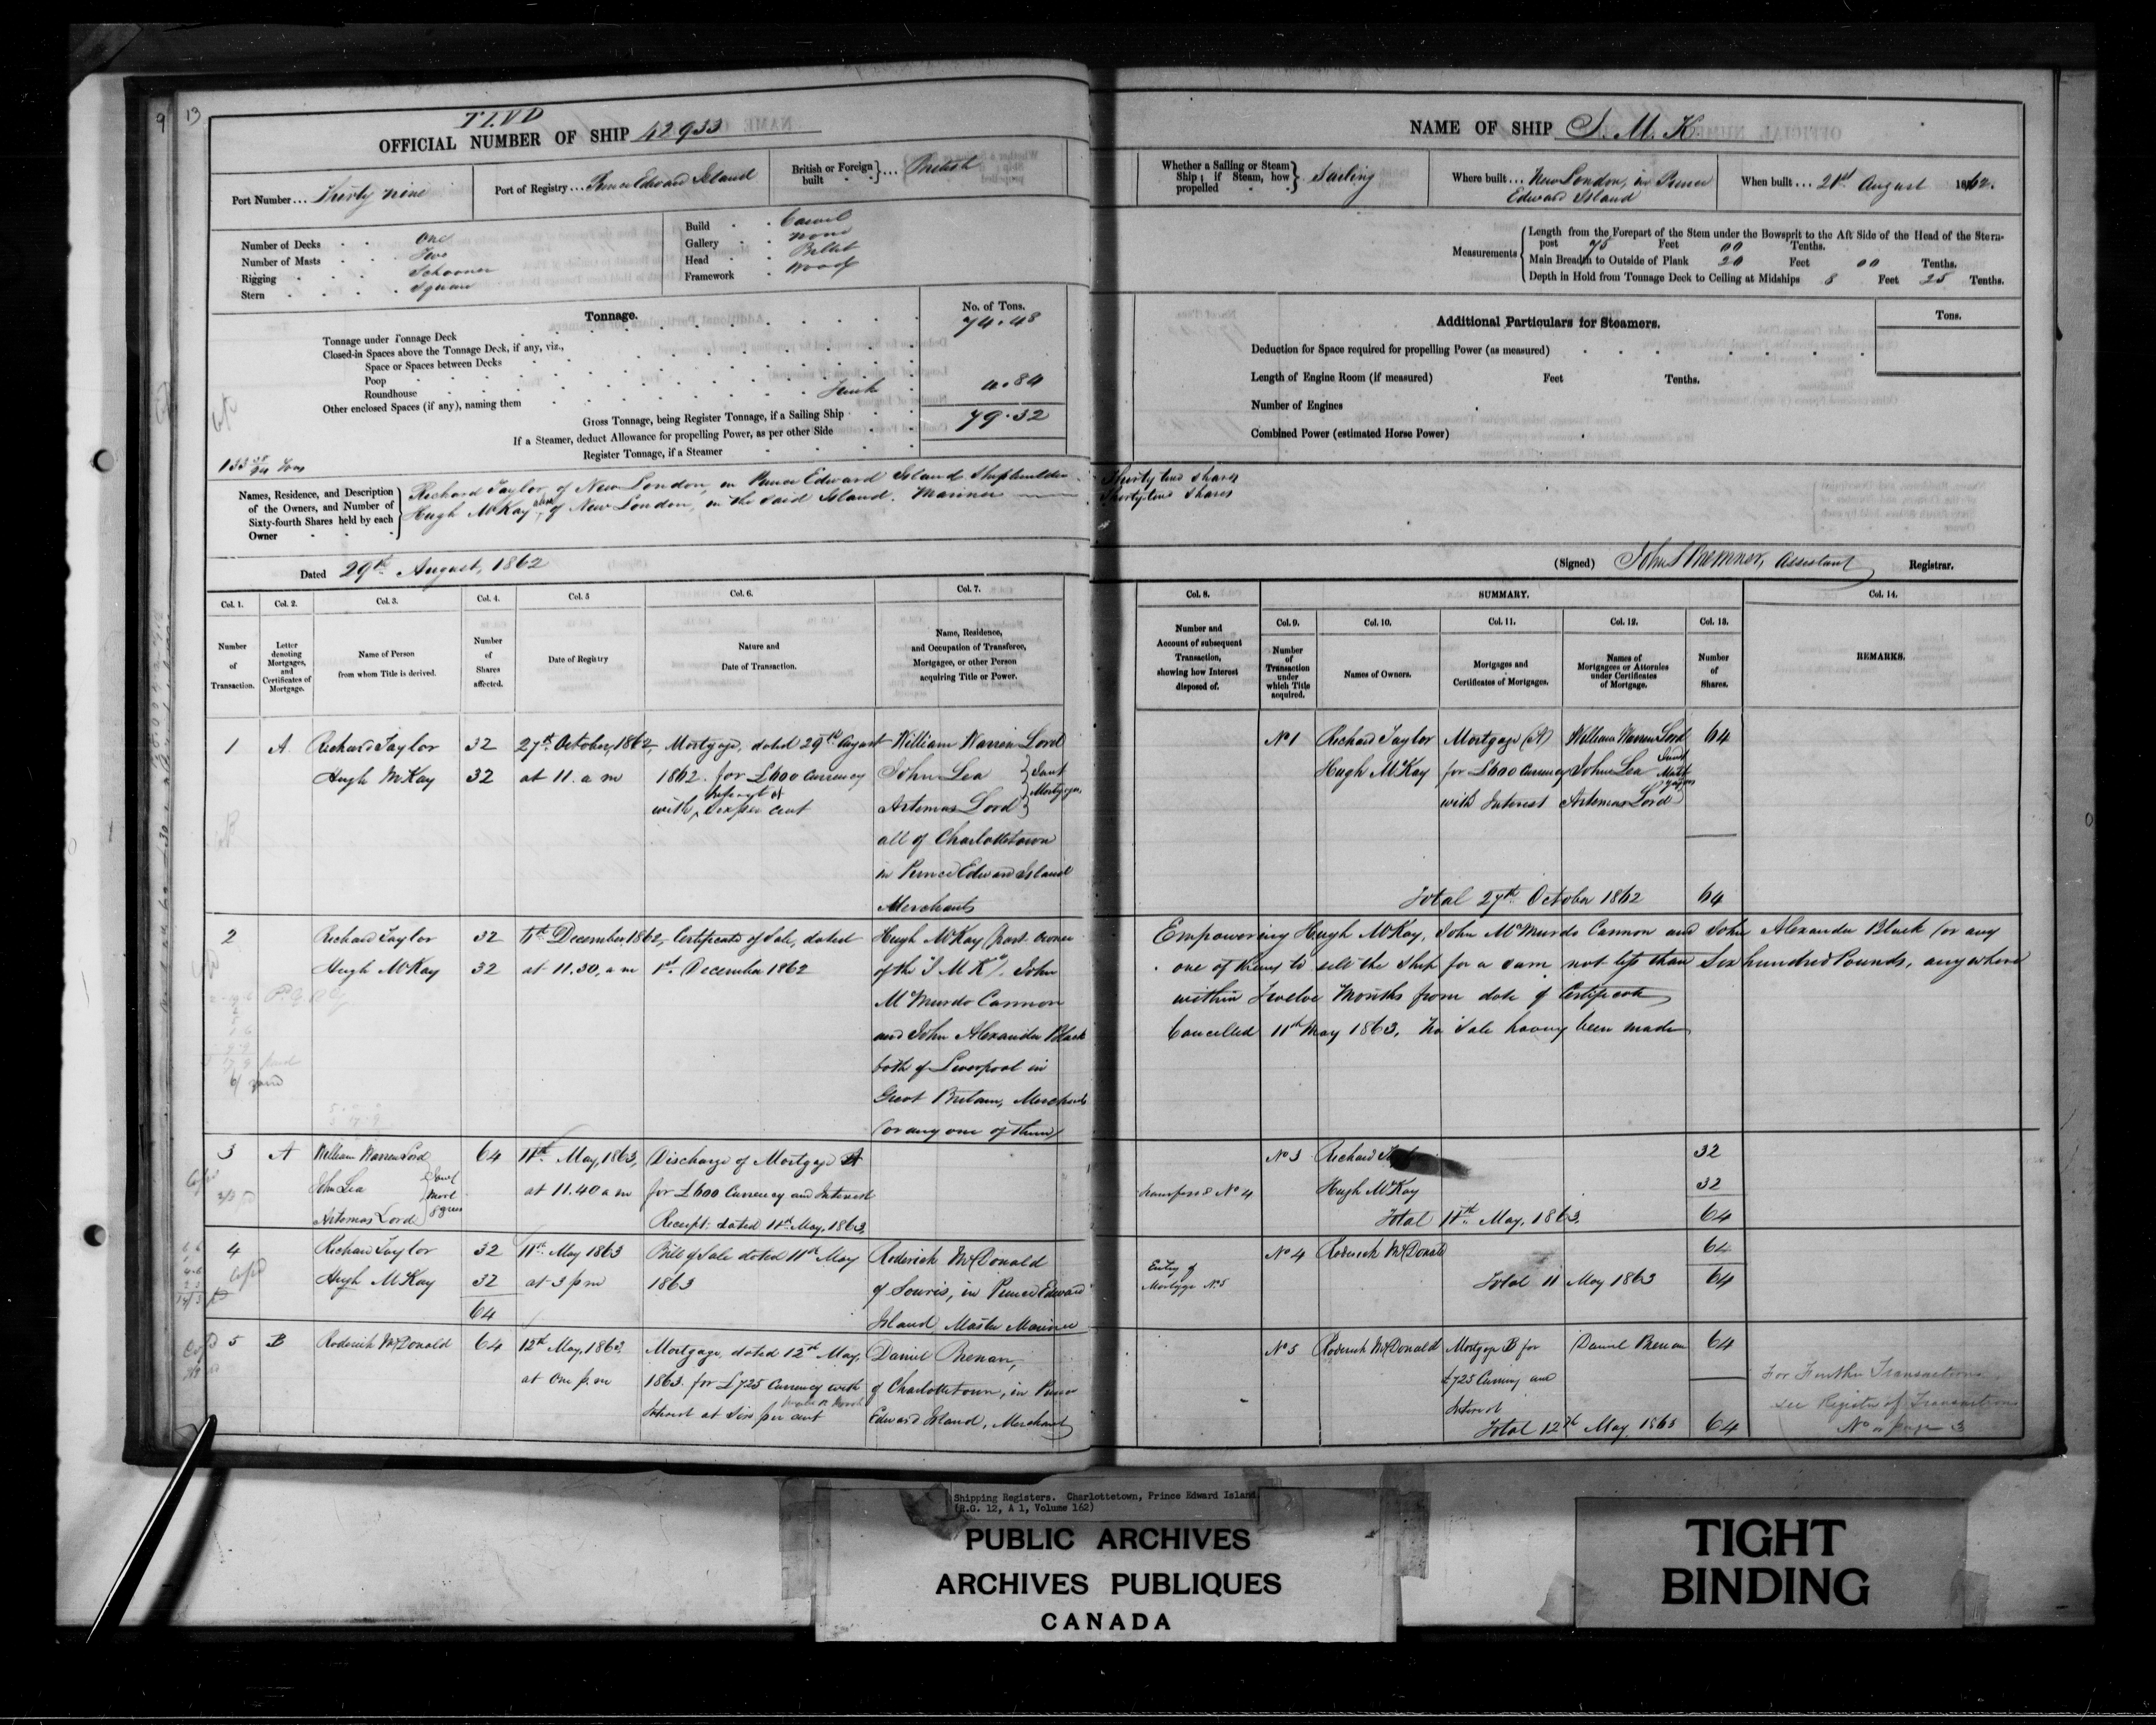 9
13
TLVD
OFFICIAL NUMBER OF SHIP 42933
Port Number... Thirty nine
Port of Registry... Prince Edward Island
British or Foreign built } ... British
Number of Decks One
Number of Masts Two
Rigging Schooner
Stern Square
Build Carvel
Gallery None
Head Billet
Framework Wood
Tonnage.
No. of Tons.
Tonnage under Tonnage Deck 74.48
Closed-in Spaces above the Tonnage Deck, if any, viz.,
Space or Spaces between Decks
Poop
Roundhouse
Other enclosed Spaces (if any), naming them 4.84
Gross Tonnage, being Register Tonnage, if a Sailing Ship 79.32
If a Steamer, deduct Allowance for propelling Power, as per other Side
Register Tonnage, if a Steamer
Names, Residence, and Description of the Owners, and Number of Sixty-fourth Shares held by each Owner
Richard Taylor of New London, in Prince Edward Island, Shipbuilder
Hugh McKay also of New London, in the said Island, Mariner
Dated 29th August, 1862
NAME OF SHIP S. M. K.
Whether a Sailing or Steam Ship; if Steam, how propelled } Sailing
Where built... New London, in Prince Edward Island
When built... 21st August 1862.
Measurements
Length from the Forepart of the Stem under the Bowsprit to the Aft Side of the Head of the Stern-
post 75 Feet 00 Tenths.
Main Breadth to Outside of Plank 20 Feet 00 Tenths.
Depth in Hold from Tonnage Deck to Ceiling at Midships 8 Feet 25 Tenths.
Additional Particulars for Steamers.
Tons.
Deduction for Space required for propelling Power (as measured)
Length of Engine Room (if measured) Feet Tenths.
Number of Engines
Combined Power (estimated Horse Power)
Thirty two shares
Thirty two Shares
(Signed) John Assistant Registrar.
Col. 1. Col. 2. Col. 3. Col. 4. Col. 5 Col. 6. Col. 7.
Number of Transaction.
Letter denoting Mortgages, and Certificates of Mortgage.
Name of Person from whom Title is derived.
Number of Shares affected.
Date of Registry
Nature and Date of Transaction.
Name, Residence, and Occupation of Transferee, Mortgagee, or other Person acquiring Title or Power.
Col. 8.
Number and Account of subsequent Transaction, showing how Interest disposed of.
SUMMARY.
Col. 9. Col. 10. Col. 11. Col. 12. Col. 13. Col. 14.
Number of Transaction under which Title acquired.
Names of Owners.
Mortgages and Certificates of Mortgages.
Names of Mortgagees or Attornies under Certificates of Mortgage.
Number of Shares.
REMARKS.
1 A Richard Taylor 32 27th October, 1862, Mortgage, dated 29th August William Warren Lord
Hugh McKay 32 at 11. a m 1862. for £600 Currency John Lea } Joint
with Interest at six per cent Artemas Lord } Mortgagees
all of Charlottetown
in Prince Edward Island
Merchants
No 1 Richard Taylor Mortgage (A) William Warren Lord 64
Hugh McKay for £600 Currency John Lea
with Interest Artemas Lord
Total 27th October 1862 64
2 Richard Taylor 32 December, 1862, Certificate of Sale, dated Hugh McKay (part owner
Hugh McKay 32 at 11.30, a m 1st December 1862 of the "S M K"), John
McMurdo Cannon
and John Alexander Black
both of Liverpool in
Great Britain, Merchants
(or any one of them)
Empowering Hugh McKay, John McMurdo Cannon and John Alexander Black (or any
one of them) to sell the Ship for a sum not less than Six hundred Pounds, anywhere
within Twelve Months from date of Certificate
Cancelled 11th May 1863, no Sale having been made
3 A William Warren Lord 64 11th May, 1863, Discharge of Mortgage A
John Lea at 11.40 a m for £600 Currency and Interest
Artemas Lord Receipt dated 11th May, 1863,
No 3 Richard 32
Transferred No 4 Hugh McKay 32
Total 11th May, 1863, 64
4 Richard Taylor 32 11th May 1863 Bill of Sale dated 11th May Roderick McDonald
Hugh McKay 32 at 3 p m 1863 of Souris, in Prince Edward
64 Island, Master Mariner
No 4 Roderick McDonald 64
Entry of Mortgage No 5 Total 11 May 1863 64
5 B Roderick McDonald 64 12th May, 1863, Mortgage, dated 12th May, Daniel Brenan,
at One p. m 1863. for £725 Currency with of Charlottetown, in Prince
Interest at Six per cent Edward Island, Merchant
No 5 Roderick McDonald Mortgage B for Daniel Brenan 64
£725 Currency and
Interest
Total 12th May, 1863 64
For Further Transactions
see Register of Transactions
No page 3
Shipping Registers. Charlottetown, Prince Edward Island
(R.G. 12, A 1, Volume 162)
PUBLIC ARCHIVES
ARCHIVES PUBLIQUES
CANADA
TIGHT
BINDING